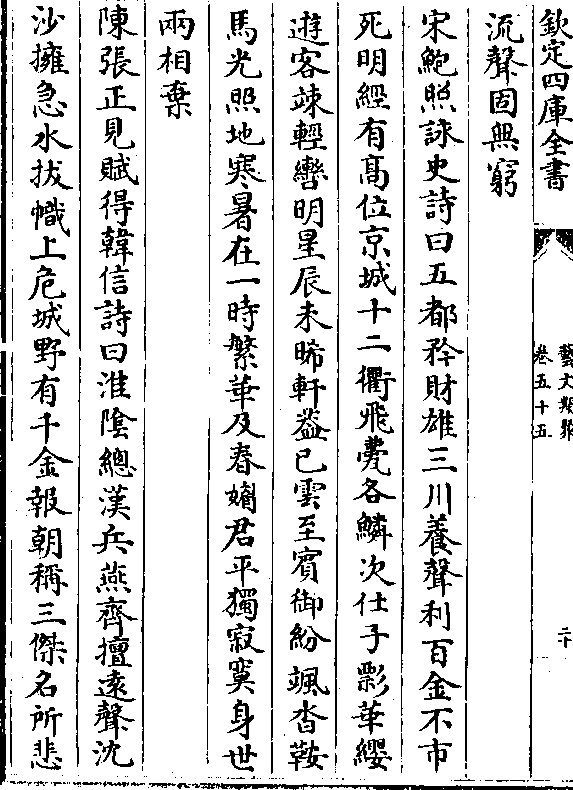 欽定四庫全書
藝文類聚
卷五十五
二十
流聲固無窮
宋鮑照詠史詩曰五都矜財雄三川養聲利百金不市
死明經有髙位京城十二衢飛甍各鱗次仕子影華纓
遊客竦輕轡明星辰未晞軒葢已雲至賓御紛颯沓鞍
馬光照地寒暑在一時繁華及春媚君平獨寂寞身世
兩相棄
陳張正見賦得韓信詩曰淮隂總漢兵燕齊擅逺聲沈
沙擁急水拔幟上危城野有千金報朝稱三傑名所悲